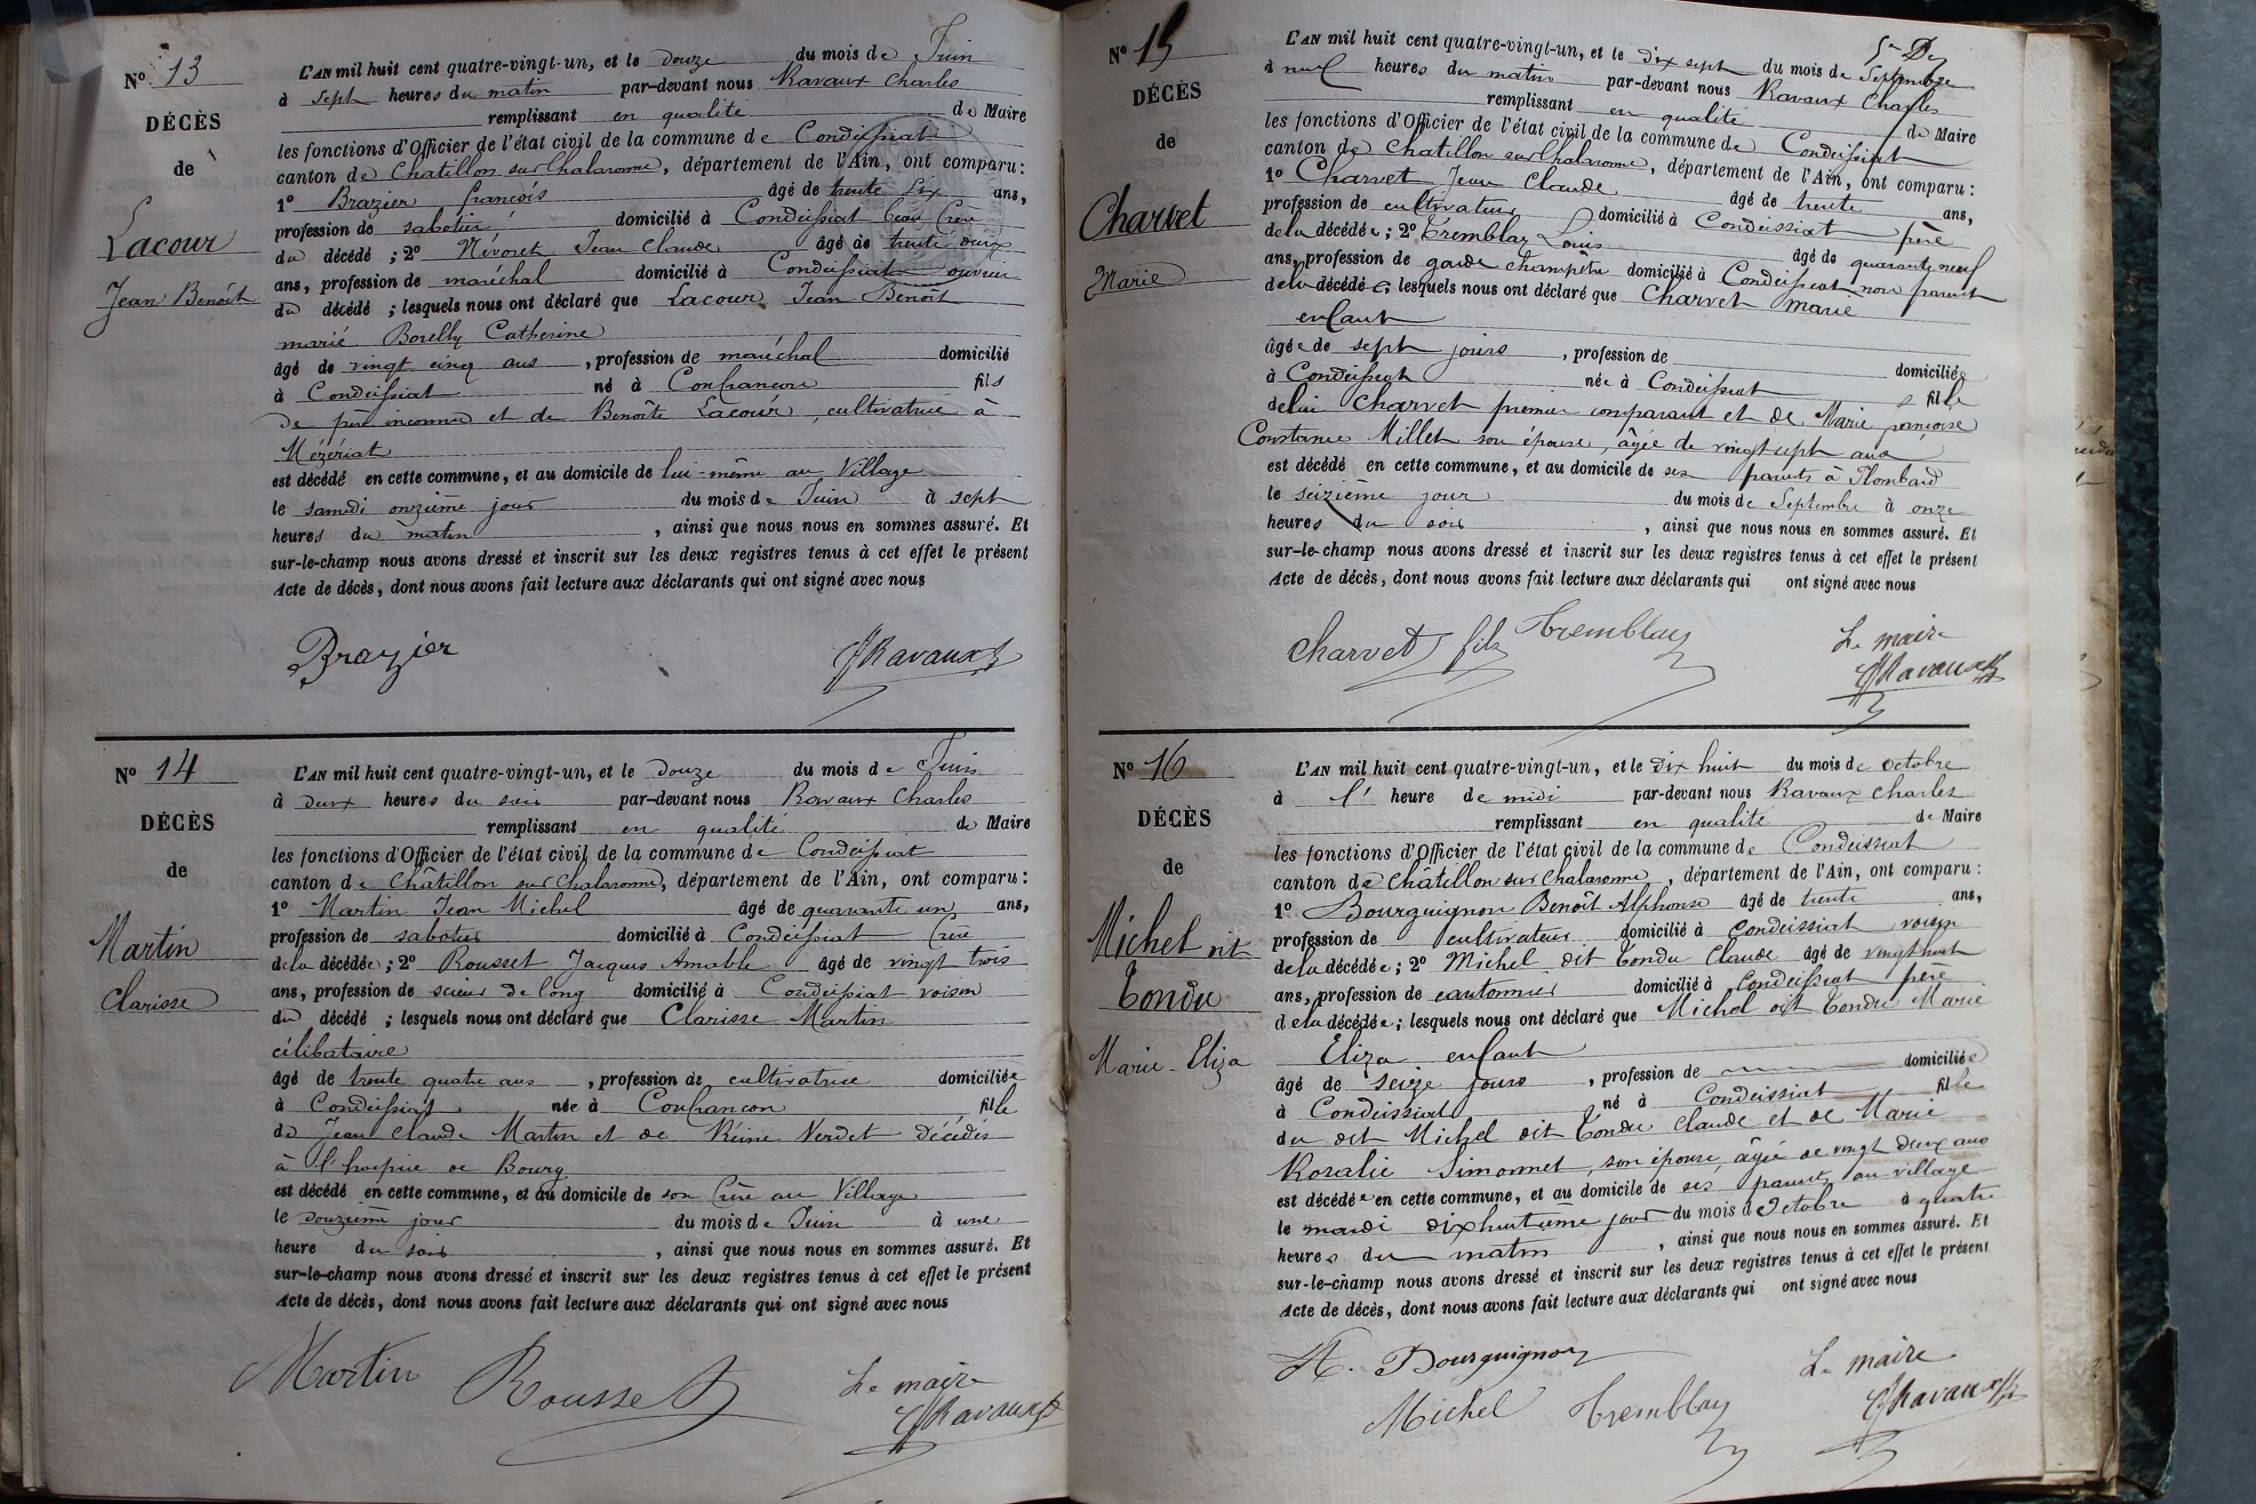 N° 13
DÉCÈS
de
Lacour
Jean Benoît
L'AN mil huit cent quatre-vingt-un, et le douze du mois de Juin
à sept heures du matin par-devant nous Ravaux Charles
remplissant en qualité de Maire
les fonctions d'Officier de l'état civil de la commune de Condeissiat
canton de Chatillon sur Chalaronne, département de l'Ain, ont comparu :
1° Brazier françois âgé de trente six ans,
profession de sabotier domicilié à Condeissiat beau frère
du décédé ; 2° Névoret Jean Claude âgé de trente deux
ans, profession de maréchal domicilié à Condeissiat ouvrier
du décédé ; lesquels nous ont déclaré que Lacour Jean Benoît
marié Borelly Catherine
âgé de vingt cinq ans , profession de maréchal domicilié
à Condeissiat né à Confrancon fils
de père inconnu et de Benoîte Lacour, cultivatrice à
Mézériat
est décédé en cette commune, et au domicile de lui-même au Village
le samedi onzième jour du mois de Juin à sept
heures du matin , ainsi que nous nous en sommes assuré. Et
sur-le-champ nous avons dressé et inscrit sur les deux registres tenus à cet effet le présent
Acte de décès, dont nous avons fait lecture aux déclarants qui ont signé avec nous
Brazier Ravaux
N° 14
DÉCÈS
de
Martin
Clarisse
L'AN mil huit cent quatre-vingt-un, et le douze du mois de Juin
à deux heures du soir par-devant nous Ravaux Charles
remplissant en qualité de Maire
les fonctions d'Officier de l'état civil de la commune de Condeissiat
canton de Châtillon sur Chalaronne, département de l'Ain, ont comparu :
1° Martin Jean Michel âgé de quarante un ans,
profession de sabotier domicilié à Condeissiat frère
de la décédée ; 2° Rousset Jacques Amable âgé de vingt trois
ans, profession de scieur de long domicilié à Condeissiat voisin
du décédé ; lesquels nous ont déclaré que Clarisse Martin
célibataire
âgé de trente quatre ans , profession de cultivatrice domiciliée
à Condeissiat née à Confrancon fille
de Jean Claude Martin et de Réine Verdet décédés
à l'hospice de Bourg
est décédé en cette commune, et au domicile de son frère au Village
le douzième jour du mois de Juin à une
heure du soir , ainsi que nous nous en sommes assuré. Et
sur-le-champ nous avons dressé et inscrit sur les deux registres tenus à cet effet le présent
Acte de décès, dont nous avons fait lecture aux déclarants qui ont signé avec nous
Martin Rousset Le maire
Ravaux
N° 15
DÉCÈS
de
Charvet
Marie
L'AN mil huit cent quatre-vingt-un, et le dix sept du mois de Septembre
à neuf heures du matin par-devant nous Ravaux Charles
remplissant en qualité de Maire
les fonctions d'Officier de l'état civil de la commune de Condeissiat
canton de Chatillon sur Chalaronne, département de l'Ain, ont comparu :
1° Charvet Jean Claude âgé de trente ans,
profession de cultivateur domicilié à Condeissiat père
de la décédée ; 2° Tremblay Louis âgé de quarante neuf
ans, profession de garde champêtre domicilié à Condeissiat non parent
de la décédée, lesquels nous ont déclaré que Charvet Marie
enfant
âgée de sept jours , profession de domiciliée
à Condeissiat née à Condeissiat fille
de lui Charvet premier comparant et de Marie françoise
Constance Millet son épouse, âgée de vingt sept ans
est décédé en cette commune, et au domicile de ses parents à Plombard
le seizième jour du mois de Septembre à onze
heures du soir , ainsi que nous nous en sommes assuré. Et
sur-le-champ nous avons dressé et inscrit sur les deux registres tenus à cet effet le présent
Acte de décès, dont nous avons fait lecture aux déclarants qui ont signé avec nous
Charvet fils Tremblay Le maire
Ravaux
N° 16
DÉCÈS
de
Michel dit
Tondu
Marie-Eliza
L'AN mil huit cent quatre-vingt-un, et le dix huit du mois de octobre
à l' heure de midi par-devant nous Ravaux Charles
remplissant en qualité de Maire
les fonctions d'Officier de l'état civil de la commune de Condeissiat
canton de Châtillon sur Chalaronne, département de l'Ain, ont comparu :
1° Bourguignon Benoît Alphonse âgé de trente ans,
profession de cultivateur domicilié à Condeissiat voisin
de la décédée ; 2° Michel dit Tondu Claude âgé de vingt huit
ans, profession de cantonnier domicilié à Condeissiat père
de la décédée ; lesquels nous ont déclaré que Michel dit Tondu Marie
Eliza enfant
âgé de seize jours , profession de domiciliée
à Condeissiat né à Condeissiat fille
du dit Michel dit Tondu Claude et de Marie
Rosalie Simonnet, son épouse, âgée de vingt deux ans
est décédée en cette commune, et au domicile de ses parents au village
le mardi dixhuitième jour du mois d'Octobre à quatre
heures du matin , ainsi que nous nous en sommes assuré. Et
sur-le-champ nous avons dressé et inscrit sur les deux registres tenus à cet effet le présent
Acte de décès, dont nous avons fait lecture aux déclarants qui ont signé avec nous
A. Bourguignon Le maire
Michel Tremblay Ravaux